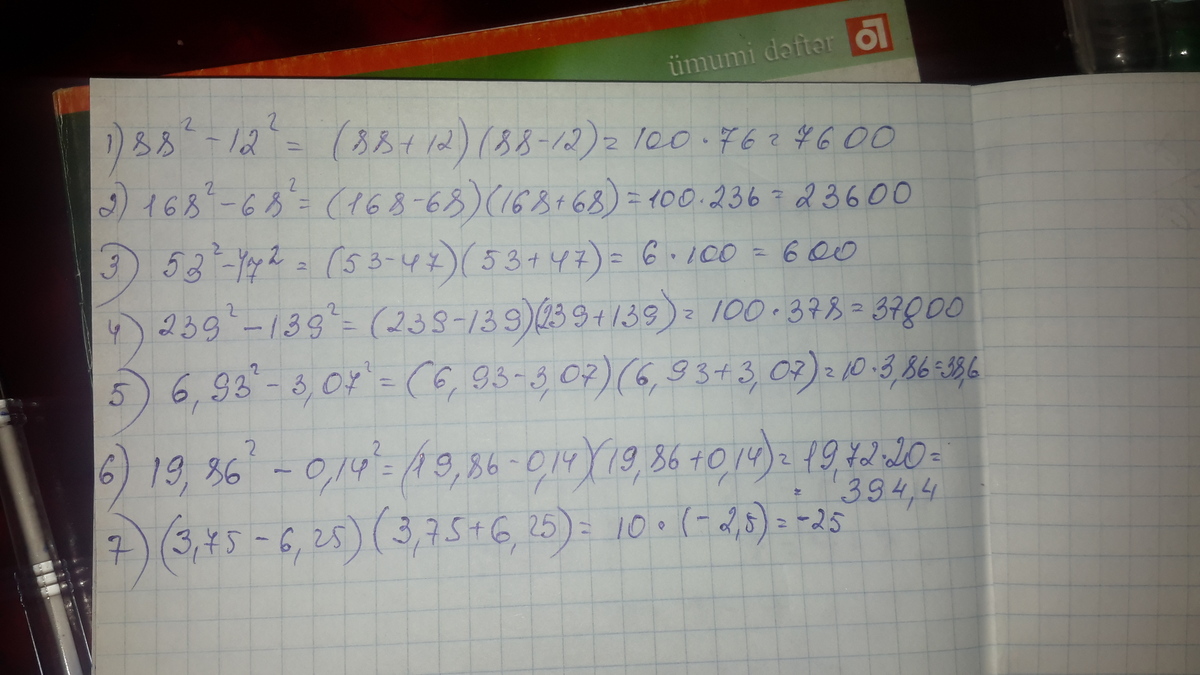 ümumi dəftər
1) 88² - 12² = (88+12)(88-12) = 100 · 76 = 7600
2) 168² - 68² = (168-68)(168+68) = 100·236 = 23600
3) 53² - 47² = (53-47)(53+47) = 6 · 100 = 600
4) 239² - 139² = (239-139)(239+139) = 100·378 = 37800
5) 6,93² - 3,07² = (6,93-3,07)(6,93+3,07) = 10·3,86=38,6
6) 19,86² - 0,14² = (19,86-0,14)(19,86+0,14) = 19,72·20 =
= 394,4
7) (3,75 - 6,25)(3,75+6,25) = 10 · (-2,5) = -25